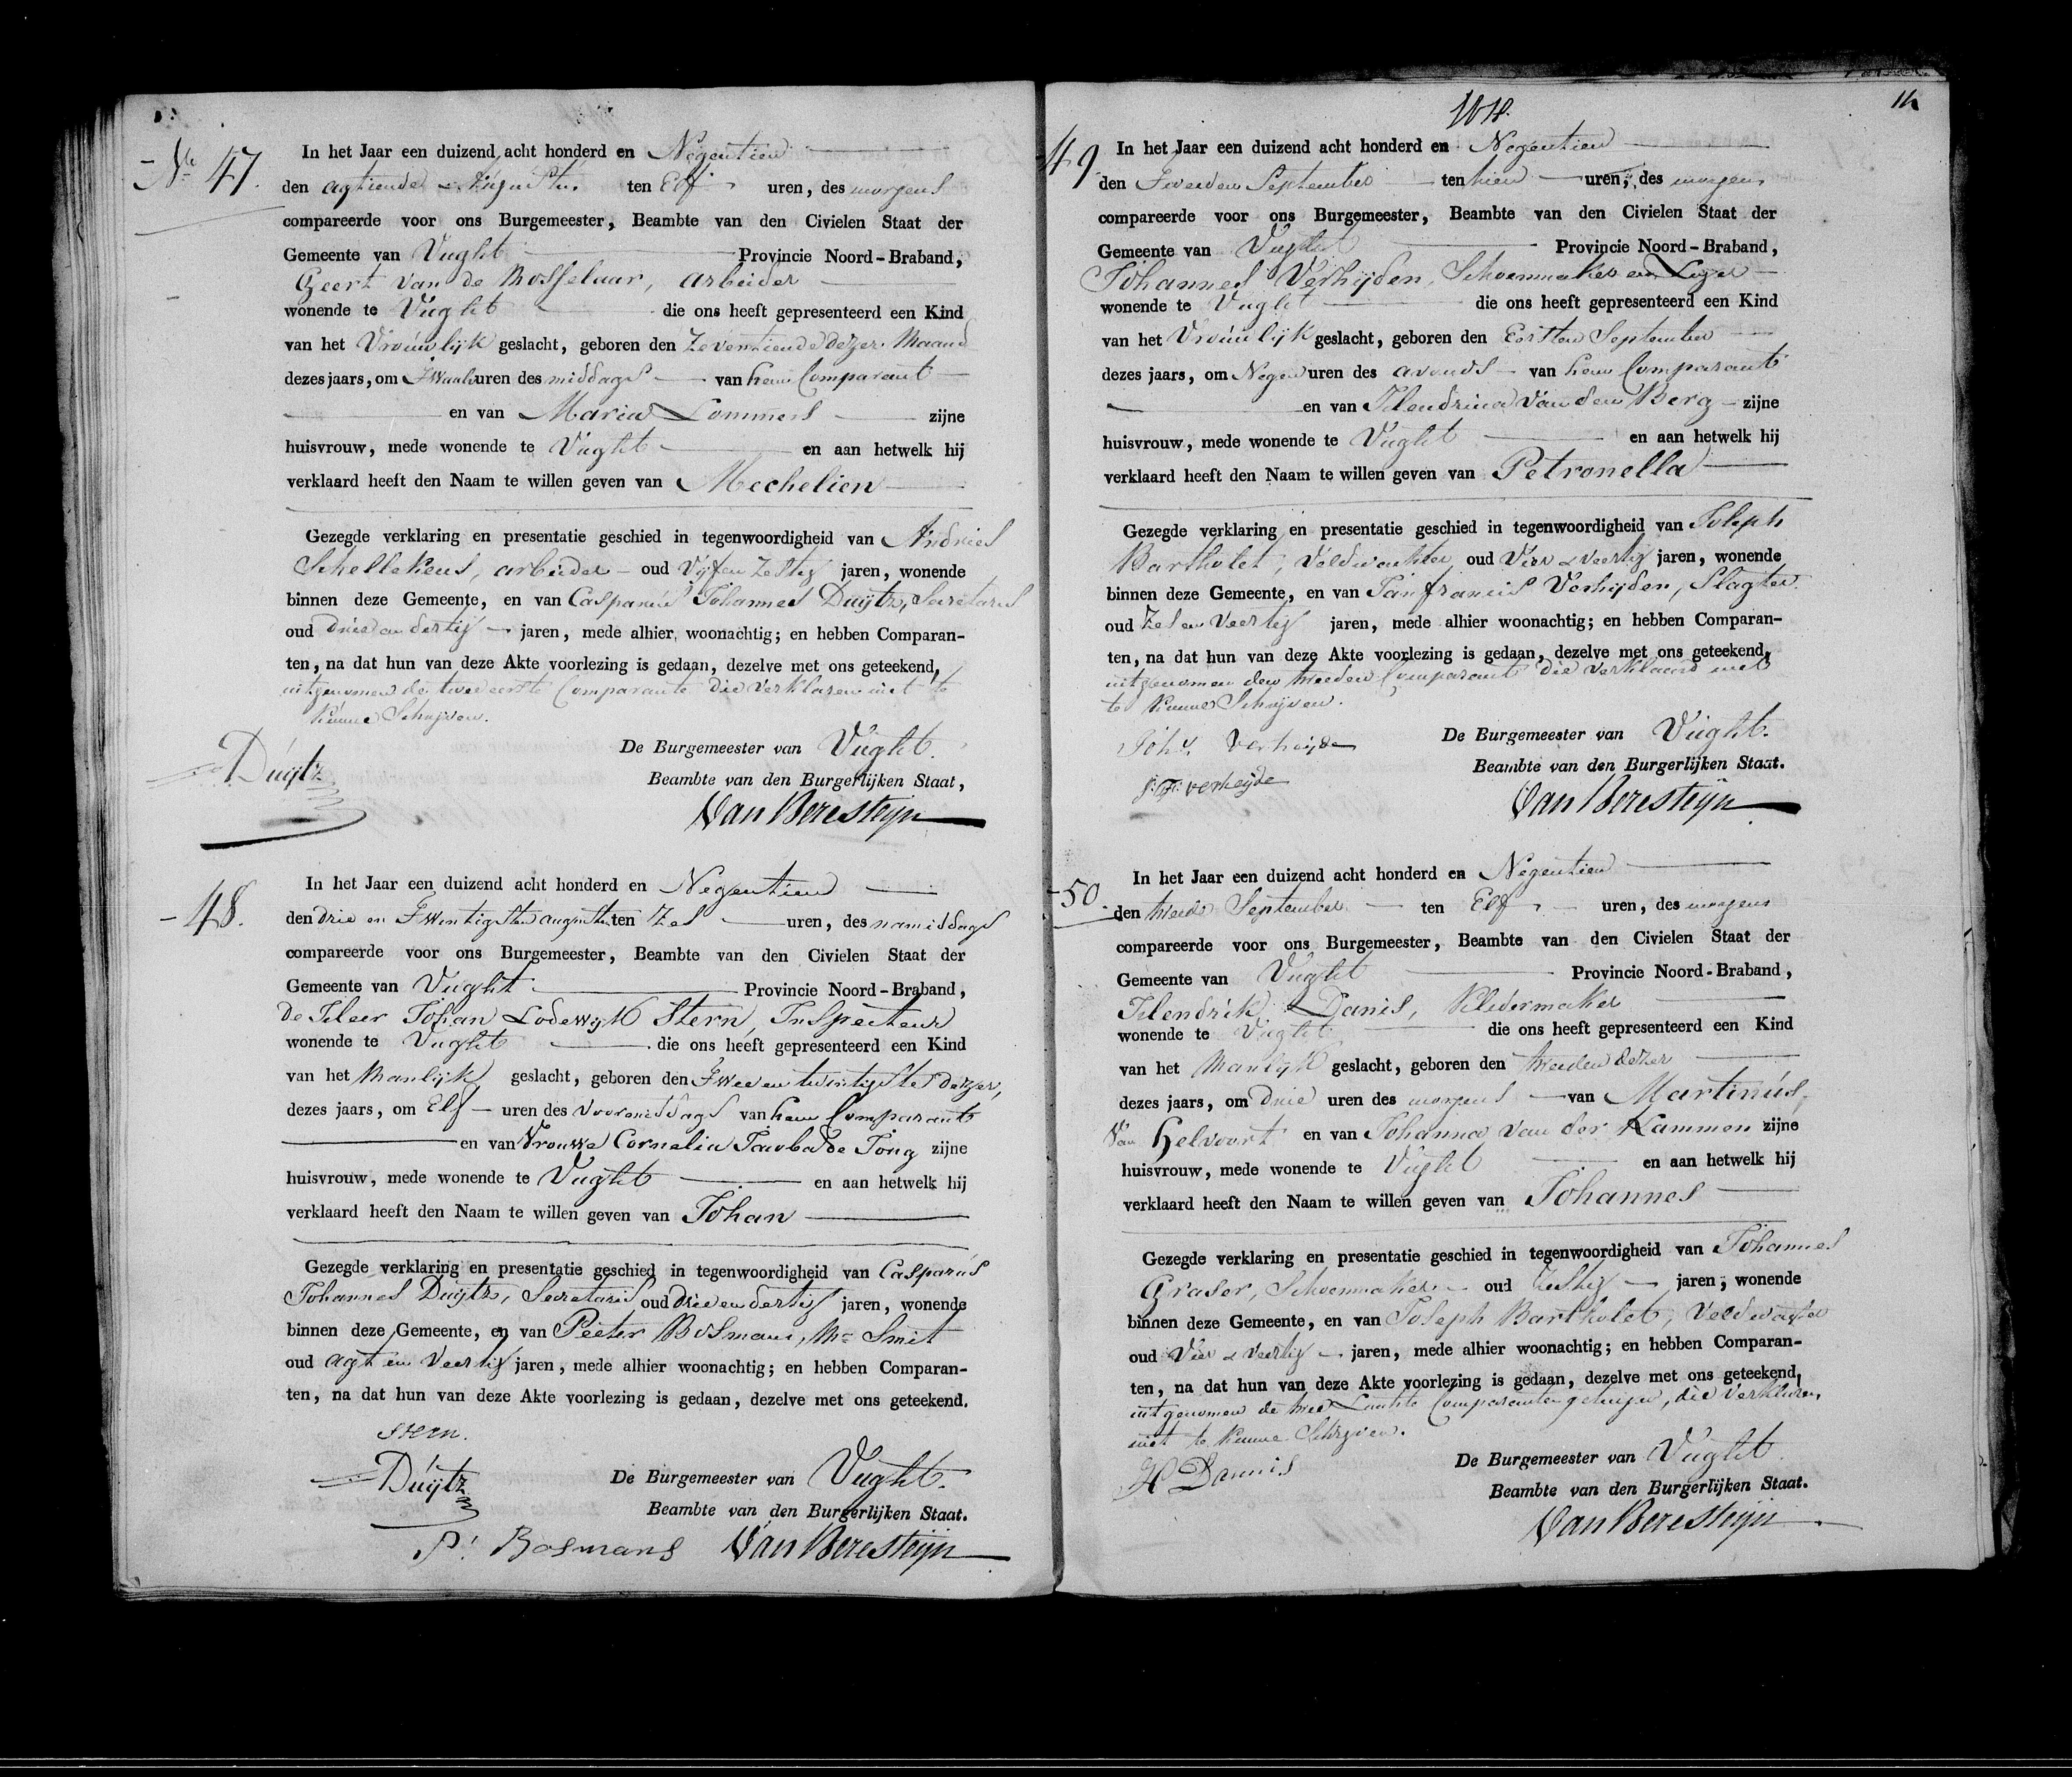 No 47.
In het Jaar een duizend acht honderd en Negentien
den agtiende Augustus ten Elf uren, des morgens
compareerde voor ons Burgemeester, Beambte van den Civielen Staat der
Gemeente van Vught Provincie Noord-Braband,
Geert van de Mosselaar, arbeider
wonende te Vught die ons heeft gepresenteerd een Kind
van het Vrouwlijk geslacht, geboren den Zeventiende dezer Maand
dezes jaars, om Twaalf uren des middags van hem Comparant
en van Maria Lommers zijne
huisvrouw, mede wonende te Vught en aan hetwelk hij
verklaard heeft den Naam te willen geven van Mechelien
Gezegde verklaring en presentatie geschied in tegenwoordigheid van Andries
Schellekens, arbeider oud Vijf en Zestig jaren, wonende
binnen deze Gemeente, en van Casparus Johannes Duijtz, Secretaris
oud drie en dertig jaren, mede alhier woonachtig; en hebben Comparan-
ten, na dat hun van deze Akte voorlezing is gedaan, dezelve met ons geteekend,
uitgenomen de twee eerste Comparante die verklaren niet te
kunne Schrijven.
De Burgemeester van Vught.
Duijtz
Beambte van den Burgerlijken Staat,
Van Beresteijn
48.
In het Jaar een duizend acht honderd en Negentien
den drie en Twintigsten augustus ten Zes uren, des namiddags
compareerde voor ons Burgemeester, Beambte van den Civielen Staat der
Gemeente van Vught Provincie Noord-Braband,
de Heer Johan Lodewijk Stern, Inspecteur
wonende te Vught die ons heeft gepresenteerd een Kind
van het Manlijk geslacht, geboren den Twee en twintigste dezer,
dezes jaars, om Elf uren des voormiddags van hem Comparant
en van Vrouwe Cornelia Jacoba de Jong zijne
huisvrouw, mede wonende te Vught en aan hetwelk hij
verklaard heeft den Naam te willen geven van Johan
Gezegde verklaring en presentatie geschied in tegenwoordigheid van Casparus
Johannes Duijtz, Secretaris oud drie en dertig jaren, wonende
binnen deze Gemeente, en van Peeter Bosmans, Mr Smit
oud agt en Veertig jaren, mede alhier woonachtig; en hebben Comparan-
ten, na dat hun van deze Akte voorlezing is gedaan, dezelve met ons geteekend.
Stern.
Duijtz
De Burgemeester van Vught.
Beambte van den Burgerlijken Staat.
P: Bosmans Van Beresteijn
14
49.
In het Jaar een duizend acht honderd en Negentien
den Tweeden September ten tien uren, des morgens
compareerde voor ons Burgemeester, Beambte van den Civielen Staat der
Gemeente van Vught Provincie Noord-Braband,
Johannes Verhijden, Schoenmaker en
wonende te Vught die ons heeft gepresenteerd een Kind
van het Vrouwlijk geslacht, geboren den Eersten September
dezes jaars, om Negen uren des avonds van hem Comparant
en van Hendrina Van den Berg zijne
huisvrouw, mede wonende te Vught en aan hetwelk hij
verklaard heeft den Naam te willen geven van Petronella
Gezegde verklaring en presentatie geschied in tegenwoordigheid van Joseph
Bartholet, Veldwachter oud Vier & Veertig jaren, wonende
binnen deze Gemeente, en van Jan francis Verhijden, Slagter
oud Zes en Veertig jaren, mede alhier woonachtig; en hebben Comparan-
ten, na dat hun van deze Akte voorlezing is gedaan, dezelve met ons geteekend,
uitgenomen den tweeden Comparant die verklaard niet
te kunne Schrijven.
Joh. verheijde
De Burgemeester van Vught.
J: F: verheijde
Beambte van den Burgerlijken Staat.
Van Beresteijn
50.
In het Jaar een duizend acht honderd en Negentien
den tweede September ten Elf uren, des morgens
compareerde voor ons Burgemeester, Beambte van den Civielen Staat der
Gemeente van Vught Provincie Noord-Braband,
Hendrik Danis, Kledermaker
wonende te Vught die ons heeft gepresenteerd een Kind
van het Manlijk geslacht, geboren den tweeden dezer
dezes jaars, om drie uren des morgens van Martinus,
Van Helvoort en van Johanna van der Kammen zijne
huisvrouw, mede wonende te Vught en aan hetwelk hij
verklaard heeft den Naam te willen geven van Johannes
Gezegde verklaring en presentatie geschied in tegenwoordigheid van Johannes
Graser, Schoenmaker oud Zestig jaren, wonende
binnen deze Gemeente, en van Joseph Bartholet, Veldwagter
oud Vier & Veertig jaren, mede alhier woonachtig; en hebben Comparan-
ten, na dat hun van deze Akte voorlezing is gedaan, dezelve met ons geteekend,
uitgenomen de twee Laatste Comparanten getuijen, die Verklaren
niet te kunne Schrijven.
H Dannis
De Burgemeester van Vught.
Beambte van den Burgerlijken Staat.
Van Beresteijn